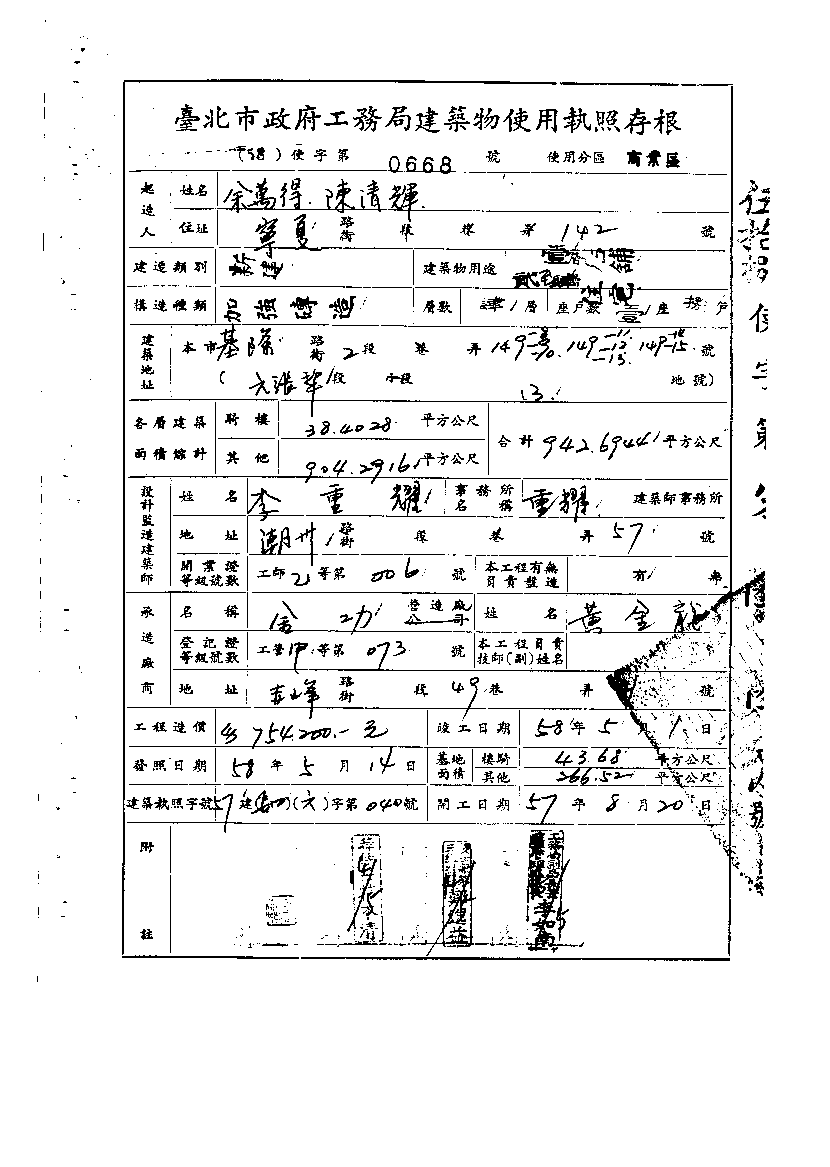 臺北市政府工務局建築物使用執照存根
(58)使字第 0668 號 使用分區 商業區
起造人 姓名 余萬得.陳清輝.
住址 寧夏 路街 段 巷 弄 142 號
建造類別 新建 建築物用途 店舖 住宅
構造種類 加強磚造 層數 層 座戶數 壹座 戶
建築地址 本市基隆 路街 2段 巷 弄 149 149 149 號
( 六張犁 段 小段 13. 地號)
各層建築面積總計 騎樓 38.4028 平方公尺 合計 942.6944 平方公尺
其他 904.2916 平方公尺
設計監造建築師 姓名 李重耀 事務所名稱 重耀 建築師事務所
地址 潮州 路街 段 巷 弄 57 號
開業證等級號數 工師 乙 等第 006 號 本工程有無負責監造 有 無
承造廠商 名稱 金力 營造廠公司 姓名 黃金龍
登記證等級號數 工營 甲 等第 073 號 本工程負責技師(副)姓名
地址 路街 段 49 巷 弄 號
工程造價 754200.-元 竣工日期 58年5月1日
發照日期 58年5月14日 基地面積 樓騎 43.68 平方公尺
其他 266.52 平方公尺
建築執照字號 57建 (六)字第040號 開工日期 57年8月20日
附註